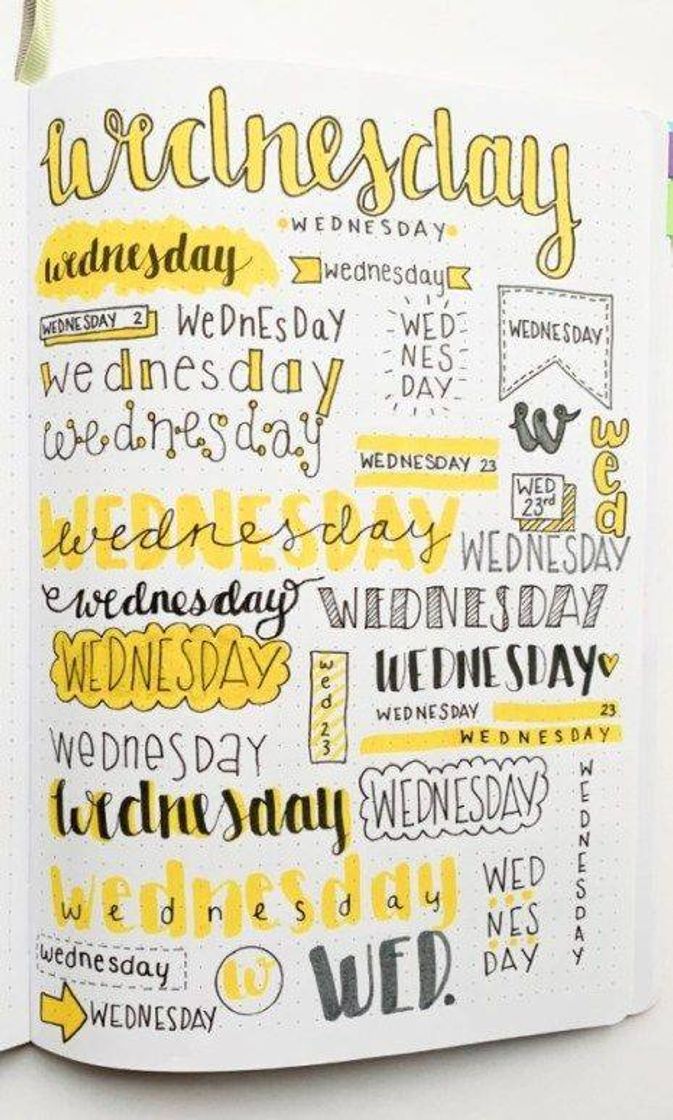 wednesday
WEDNESDAY
wednesday
wednesday
WEDNESDAY 2
WeDnEsDaY
WED
NES
DAY
WEDNESDAY
wednesday
wednesday
w
wed
WEDNESDAY 23
WED
23rd
WEDNESDAY
wednesday
WEDNESDAY
wednesday
WEDNESDAY
WEDNESDAY
wed 23
WEDNESDAY
WEDNESDAY 23
WEDNESDAY
wednesday
WEDNESDAY
WEDNESDAY
wednesday
wednesday
wednesday
WED
NES
DAY
wednesday
w
WED.
WEDNESDAY